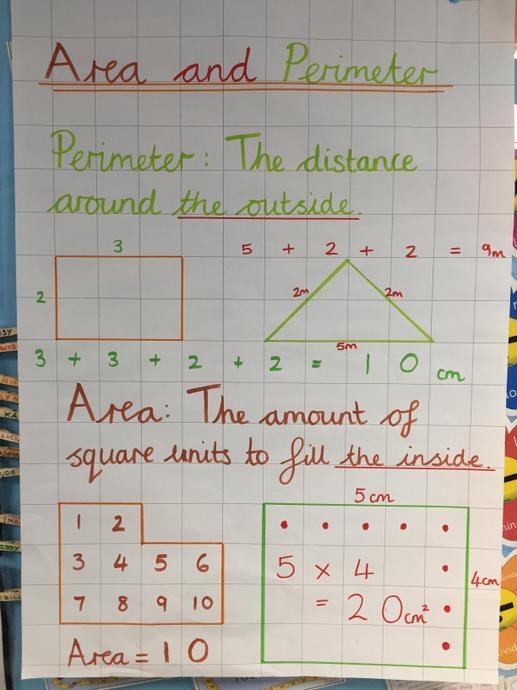 Area and Perimeter
Perimeter: The distance
around the outside.
3
2
5 + 2 + 2 = 9m
2m 2m
5m
3 + 3 + 2 + 2 = 10 cm
Area: The amount of
square units to fill the inside.
1 2
3 4 5 6
7 8 9 10
Area = 10
5cm
5 x 4
= 20cm²
4cm